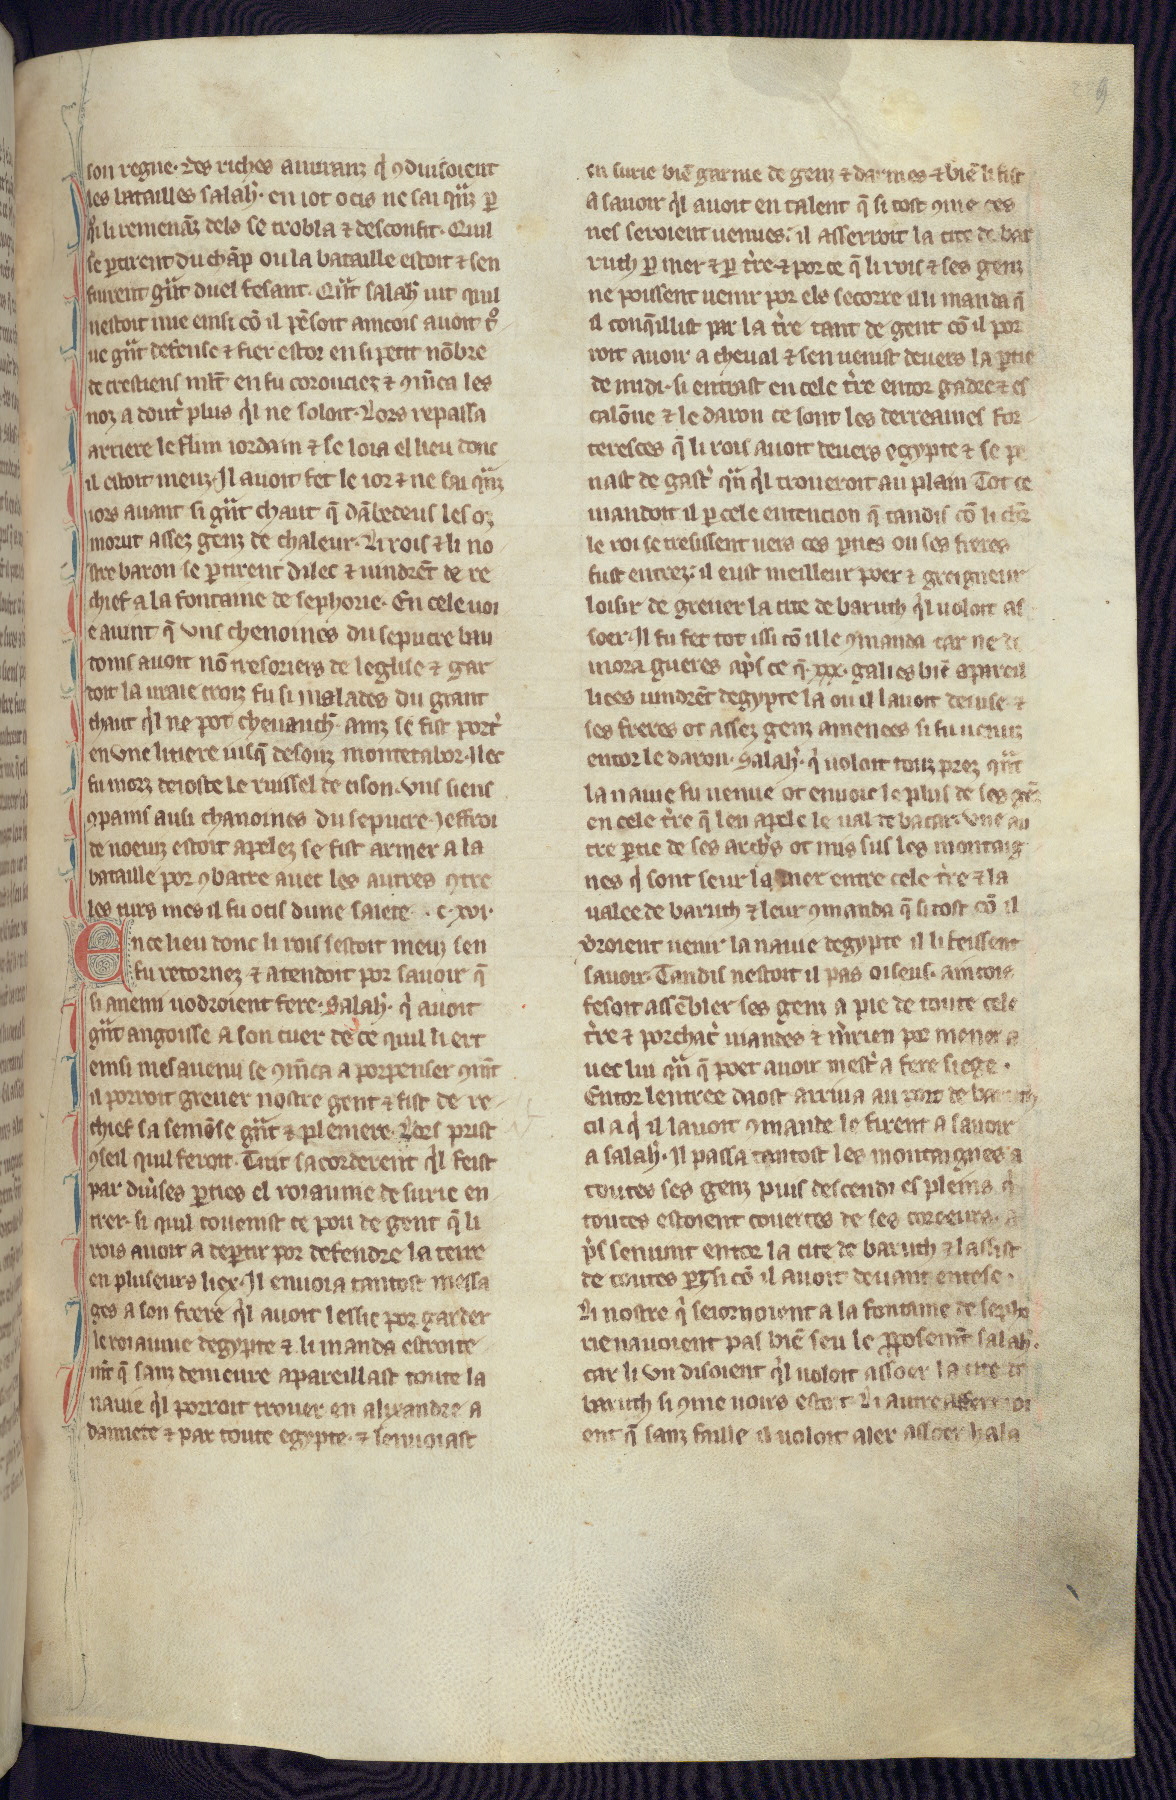 son regne. Des riches amiranz q̓ ꝯduisoient
les batailles salah̓. en i ot ocis ne sai q̃nz ꝑ
q̓i li remenãz dels se trobla ⁊ desconfit. Quil
se ꝑtirent du chãp ou la bataille estoit ⁊ sen
fuirent gñt duel fesant. Qñt salah̓ uit quil
nestoit mie einsi cõ il pẽsoit aincois auoit t̓o
ue gñt defense ⁊ fier estor en si petit nõbre
de crestiens ml̃t en fu corouciez ⁊ ꝯm̃ca les
noz a dout̓ plus q̓l ne soloit. Lors repassa
arriere le flun iordain ⁊ se loia el lieu donc
il estoit meuz. Il auoit fet le ior ⁊ ne sai q̃nz
iors auant si gñt chaut q̃ dãbedeus les oz
morut assez genz de chaleur. Li rois ⁊ li no
stre baron se ꝑtirent dilec ⁊ uindrẽt de re
chief a la fontaine de sephorie. En cele uoi
e auint q̃ vns chenoines du sepucre bau
toins auoit nõ tresoriers de leglise ⁊ gar
doit la uraie croiz fu si malades du grant
chaut q̓l ne pot cheuauch̓. ainz se fist port̓
en vne litiere iusq̃ desouz montetabor. Ilec
fu morz deioste le ruissel de cison. vns siens
ꝯpains ausi chanoines du sepucre. Ieffroi
de noeuz estoit apelez se fist armer a la
bataille por ꝯbatre auec les autres ꝯtre
les turs mes il fu ocis dune saiete. .c.xvi.
En ce lieu donc li rois sestoit meuz sen
fu retornez ⁊ atendoit por sauoir q̃
si anemi uodroient fere. Salah̓. q̓ auoit
gñt angoisse a son cuer de ce quil li ert
einsi mesauenu se ꝯm̃ca a porpenser ꝯm̃t
il porroit greuer nostre gent ⁊ fist de re
chief sa semõse gñt ⁊ pleniere. Lors prist
ꝯseil quil feroit. Tuit sacorderent q̓l feist
par diu̓ses ꝑties el roiaume de surie en
trer. si quil couenist ce pou de gent q̃ li
rois auoit a deꝑtir por defendre la terre
en pluseurs liex. Il enuoia tantost messa
ges a son frere q̓l auoit lessie por garder
le roiaume degypte ⁊ li manda estroite
m̃t q̃ sanz demeure apareillast toute la
nauie q̓l porroit trouer en alixandre a
damiete ⁊ par toute egypte. ⁊ lenuoiast
en surie biẽ garnie de genz ⁊ darmes ⁊ biẽ li fist
a sauoir q̓l auoit en talent q̃ si tost ꝯme ces
nes seroient uenues. il asserroit la cite de bar
ruth ꝑ mer ⁊ ꝑ t̓re. ⁊ por ce q̃ li rois ⁊ ses genz
ne poissent uenir por els secorre il li manda q̃
il conq̃illist par la t̓re tant de gent cõ il por
roit auoir a cheual ⁊ sen uenist deuers la ꝑtie
de midi. si entrast en cele t̓re entor gadre ⁊ es
calõne ⁊ le daron ce sont les derreaines for
teresces q̃ li rois auoit deuers egypte ⁊ se pe
nast de gast̓ q̃n q̓l troueroit au plain Tot ce
mandoit il ꝑ cele entencion q̃ tandis cõ li ch̓r
le roi se tresissent uers ces ꝑties ou ses freres
fust entrez. il eust meilleur poer ⁊ greigneur
loisir de greuer la cite de baruth q̓l uoloit as
soer. Il fu fet tot issi cõ il le ꝯmanda car ne de
mora gueres ap̓s ce q̃ .xxx. galies biẽ apareil
liees uindrẽt degypte la ou il lauoit deuise ⁊
ses freres ot assez genz amenees si fu uenuz
entor le daron. Salah̓. q̓ uoloit touz prez q̃nt
la nauie fu uenue ot enuoie le plus de ses gẽz
en cele t̓re q̃ len apele le ual de bacar. vne au
tre ꝑtie de ses arch̓s ot mis sus les montaig
nes q̓ sont seur la mer entre cele t̓re ⁊ la
ualee de baruth ⁊ leur ꝯmanda q̃ si tost cõ il
vroient uenir la nauie degypte il li feissent
sauoir. Tandis nestoit il pas oiseus. aincois
fesoit assẽbler ses genz a pie de toute cele
t̓re ⁊ porchac̓ uiandes ⁊ m̓rien por mener a
uec lui q̃n q̃ poet auoir mest̓ a fere siege.
Entor lentree daost arriua au port de baruth
cil a q̓ il lauoit ꝯmande le firent a sauoir
a salah̓. Il passa tantost les montaignes a
toutes ses genz puis descendi es pleins q̓
toutes estoient couertes de ses coreurs. a
p̓s senuint entor la cite de baruth ⁊ lassist
de toutes ꝑz si cõ il auoit deuant entese.
Li nostre q̓ seiornoient a la fontaine de sepho
rie nauoient pas biẽ seu le ꝓposem̃t salah̓.
car li vn disoient q̓l uoloit assoer la cite de
baruth si ꝯme uoirs estoit. Li autre affermoi
ent q̃ sanz faille il uoloit aler assoer hala